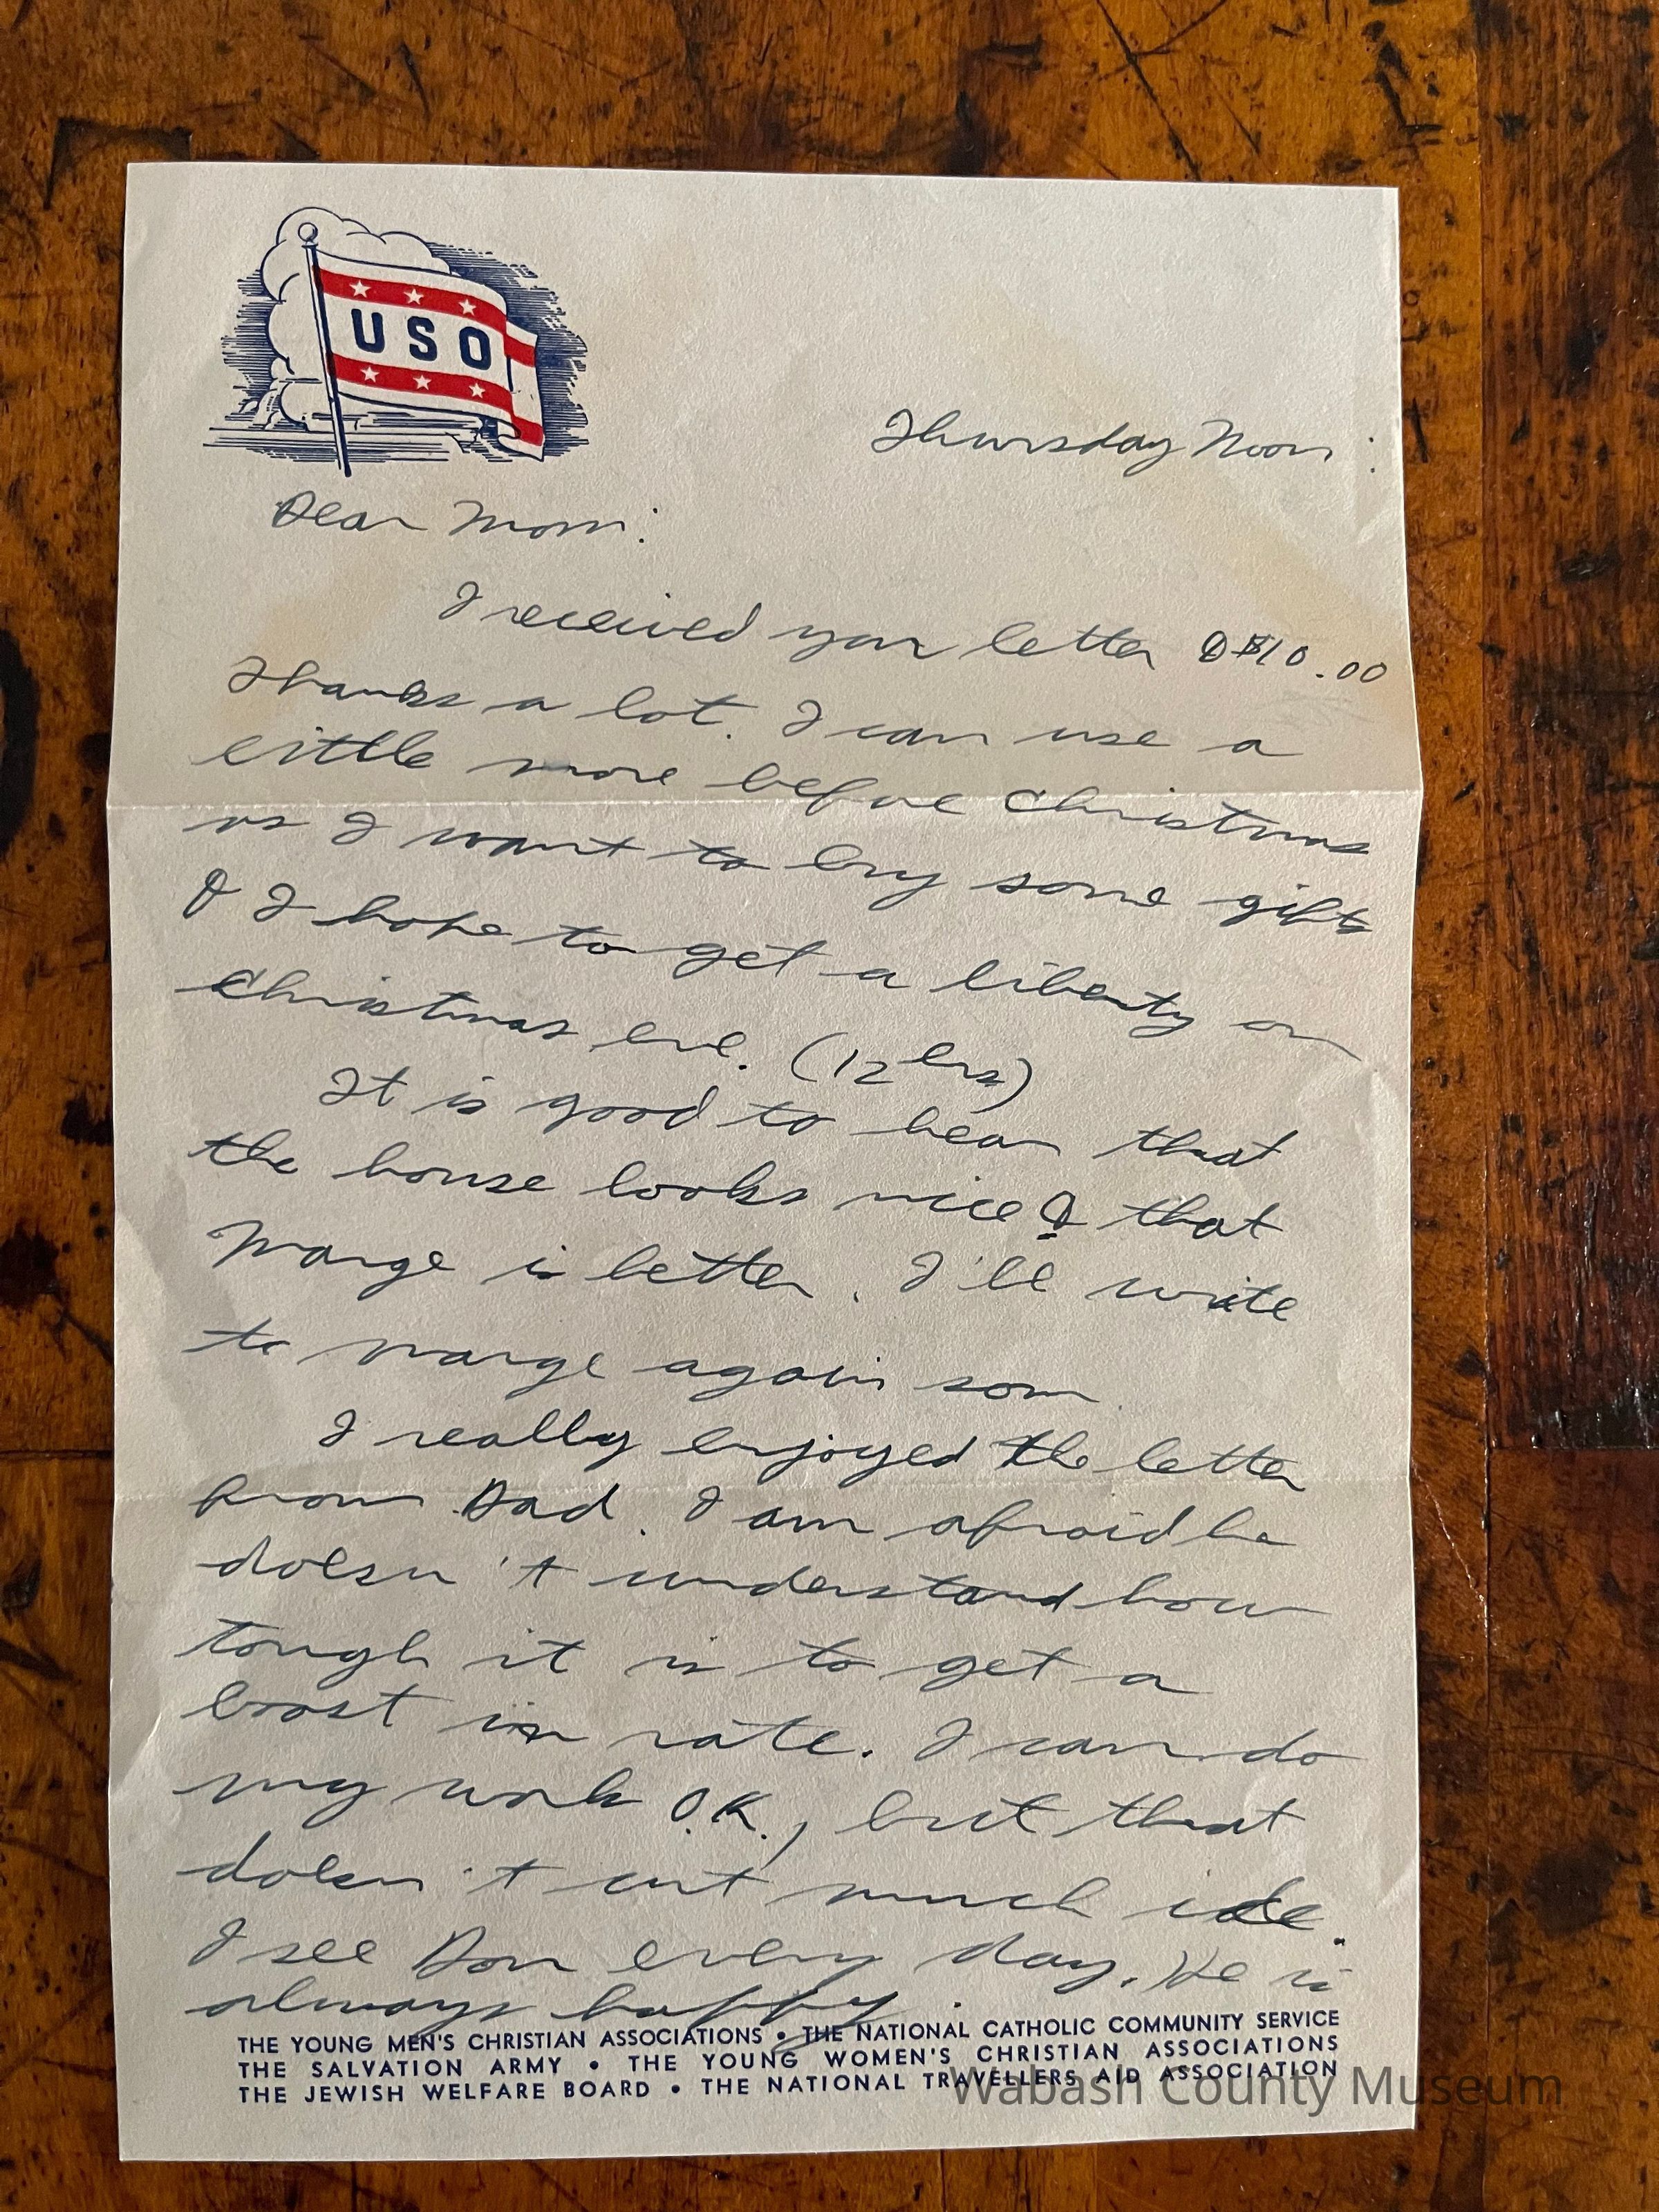 USO
Thursday Noon:
Dear Mom:
I received your letter & $10.00
Thanks a lot. I can use a
little more before Christmas
as I want to buy some gifts
& I hope to get a liberty on
Christmas eve. (12 hrs)
It is good to hear that
the house looks nice & that
Marge is better. I'll write
to Marge again soon
I really enjoyed the letter
from Dad. I am afraid he
doesn't understand how
tough it is to get a
boost in rate. I can do
my work O.K., but that
doesn't cut much ice.
I see Don every day. He is
always happy.
THE YOUNG MEN'S CHRISTIAN ASSOCIATIONS • THE NATIONAL CATHOLIC COMMUNITY SERVICE
THE SALVATION ARMY • THE YOUNG WOMEN'S CHRISTIAN ASSOCIATIONS
THE JEWISH WELFARE BOARD • THE NATIONAL TRAVELLERS AID ASSOCIATION
Wabash County Museum